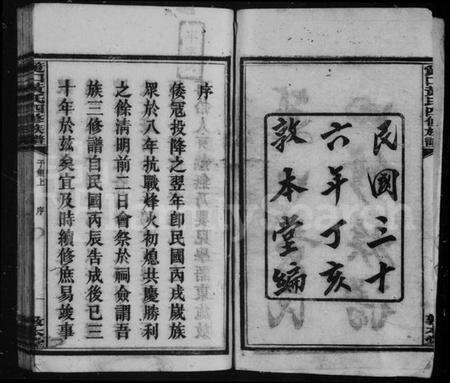 民國三十
六年丁亥
敦本堂編
序
倭冦投降之翌年卽民國丙戌歲族
眾於八年抗戰烽火初熄共慶勝利
之餘清明前二日會祭於祠僉謂吾
族三修譜自民國丙辰告成後已三
十年於玆矣宜及時續修庶易竣事
子集上
序